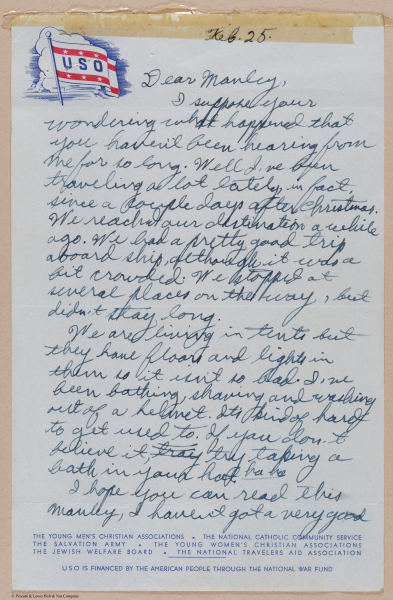 USO
Feb. 25.
Dear Manley,
I suppose your
wondering what happened that
you haven't been hearing from
me for so long. Well I've been
traveling a lot lately, in fact,
since a couple days after Christmas.
We reached our destination a while
ago. We had a pretty good trip
aboard ship although it was a
bit crowded. We stopped at
several places on the way, but
didn't stay long.
We are living in tents but
they have floors and lights in
them so it isn't so bad. I've
been bathing, shaving and washing
out of a helmet. Its kind of hard
to get used to. If you don't
believe it, try taking a
bath in your hat. haha
I hope you can read this
Manley, I haven't got a very good
THE YOUNG MEN'S CHRISTIAN ASSOCIATIONS • THE NATIONAL CATHOLIC COMMUNITY SERVICE
THE SALVATION ARMY • THE YOUNG WOMEN'S CHRISTIAN ASSOCIATIONS
THE JEWISH WELFARE BOARD • THE NATIONAL TRAVELERS AID ASSOCIATION
USO IS FINANCED BY THE AMERICAN PEOPLE THROUGH THE NATIONAL WAR FUND